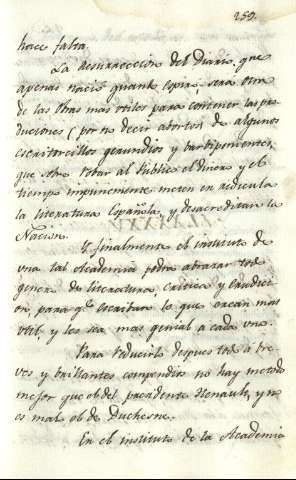 259.
hace falta.
La resurreccion del Diario, que
apenas nació quando espiró será otra
de las obras mas utiles para contener las pro-
duciones (por no decir abortos de algunos
escritorcillos gerundios y barbiponientes,
que sobre robar al Publico el dinero y el
tiempo impunemente meten en ridicula
la literatura Española, y desacreditan la
Nacion.
Y finalmente el instituto de
una tal Academia podra abrazar todo
genero de literatura critica y erudici-
on, para qe. escriban lo que crean mas
util, y les sea mas genial a cada uno.
Para reducirlo despues todo à bre-
ves y brillantes compendios no hay metodo
mejor que el del presidente Henault, y no
es malo el de Duchesne.
En el instituto de la Academia